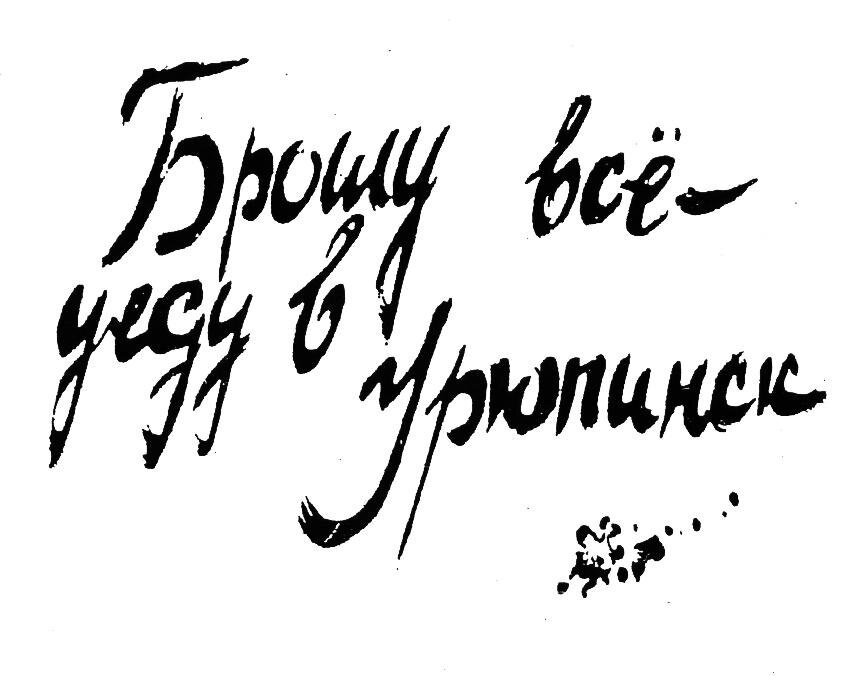 Брошу всё –
уеду в
Урюпинск